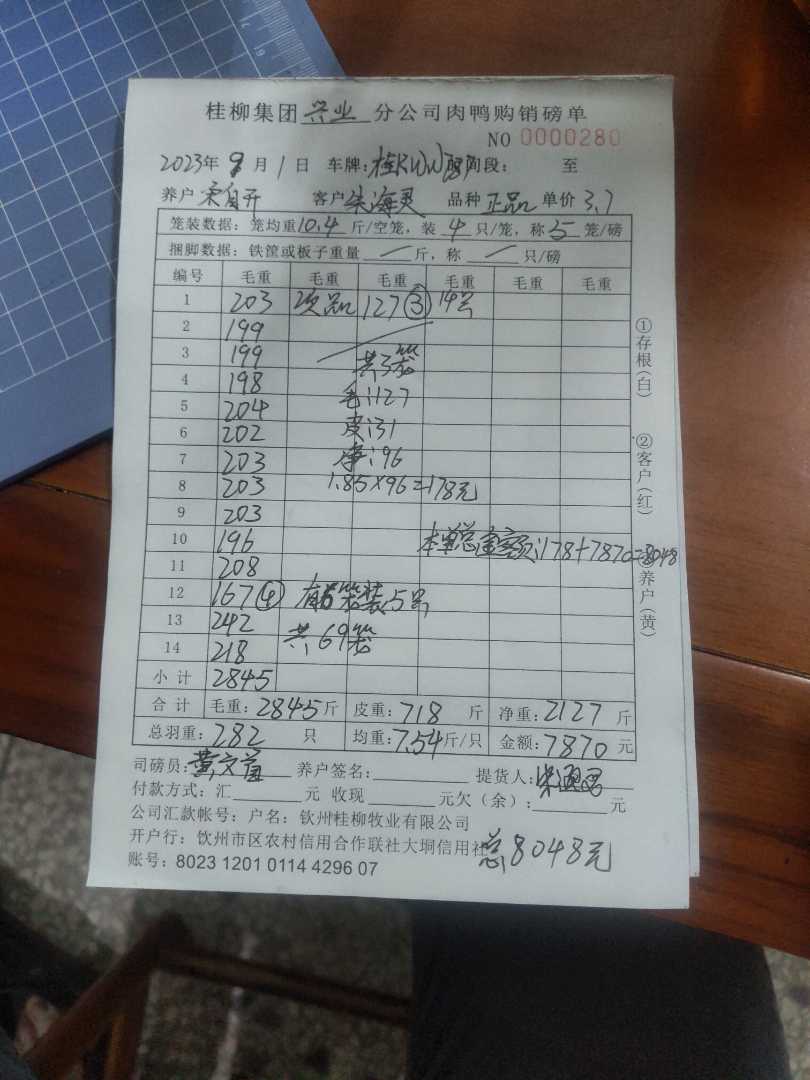 桂柳集团兴业分公司肉鸭购销磅单
NO 0000280
2023年9月1日 车牌: 时间段: 至
养户 客户朱海 品种正品 单价3.7
笼装数据: 笼均重10.4斤/空笼, 装4只/笼, 称5笼/磅
捆脚数据: 铁筐或板子重量 — 斤, 称 — 只/磅
编号 毛重 毛重 毛重 毛重 毛重 毛重
1 203 次品 127③ 14只
2 199
3 199 共3笼
4 198 毛:127
5 204 皮:31
6 202 净:96
7 203
8 203 1.85×96=178元
9 203
10 196 本单总金额:178+7870=8048
11 208
12 167④ 装5只
13 242 共69笼
14 218
小计 2845
合计 毛重:2845斤 皮重:718斤 净重:2127斤
总羽重:282只 均重:7.54斤/只 金额:7870元
司磅员:黄文 养户签名: 提货人:朱
付款方式: 汇 元 收现 元欠(余): 元
公司汇款帐号: 户名: 钦州桂柳牧业有限公司
开户行: 钦州市区农村信用合作联社大垌信用社
总8048元
账号: 8023 1201 0114 4296 07
①存根(白) ②客户(红) ③养户(黄)